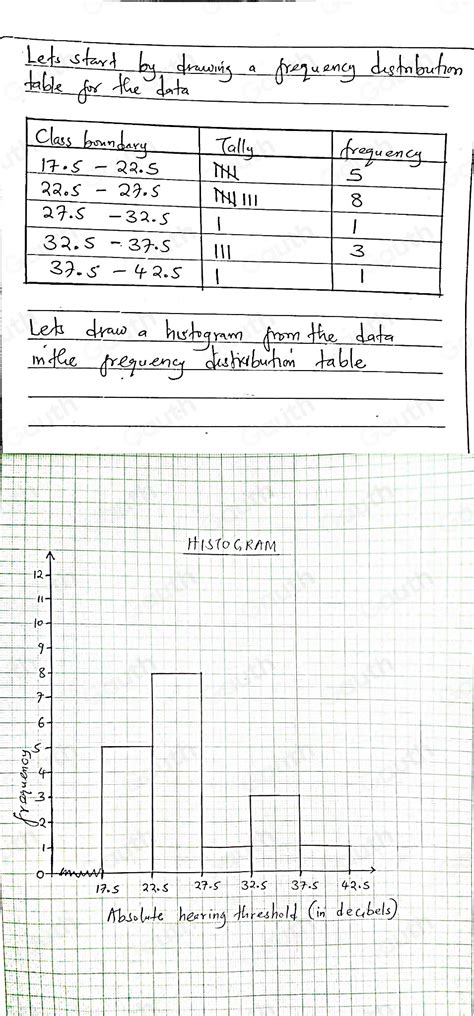 Lets start by drawing a frequency distribution
table for the data
Class boundary Tally frequency
17.5 - 22.5 5
22.5 - 27.5 8
27.5 - 32.5 | 1
32.5 - 37.5 ||| 3
37.5 - 42.5 | 1
Lets draw a histogram from the data
in the frequency distribution table
HISTOGRAM
12
11
10
9
8
7
6
5
4
3
2
1
0
frequency
17.5 22.5 27.5 32.5 37.5 42.5
Absolute hearing threshold (in decibels)